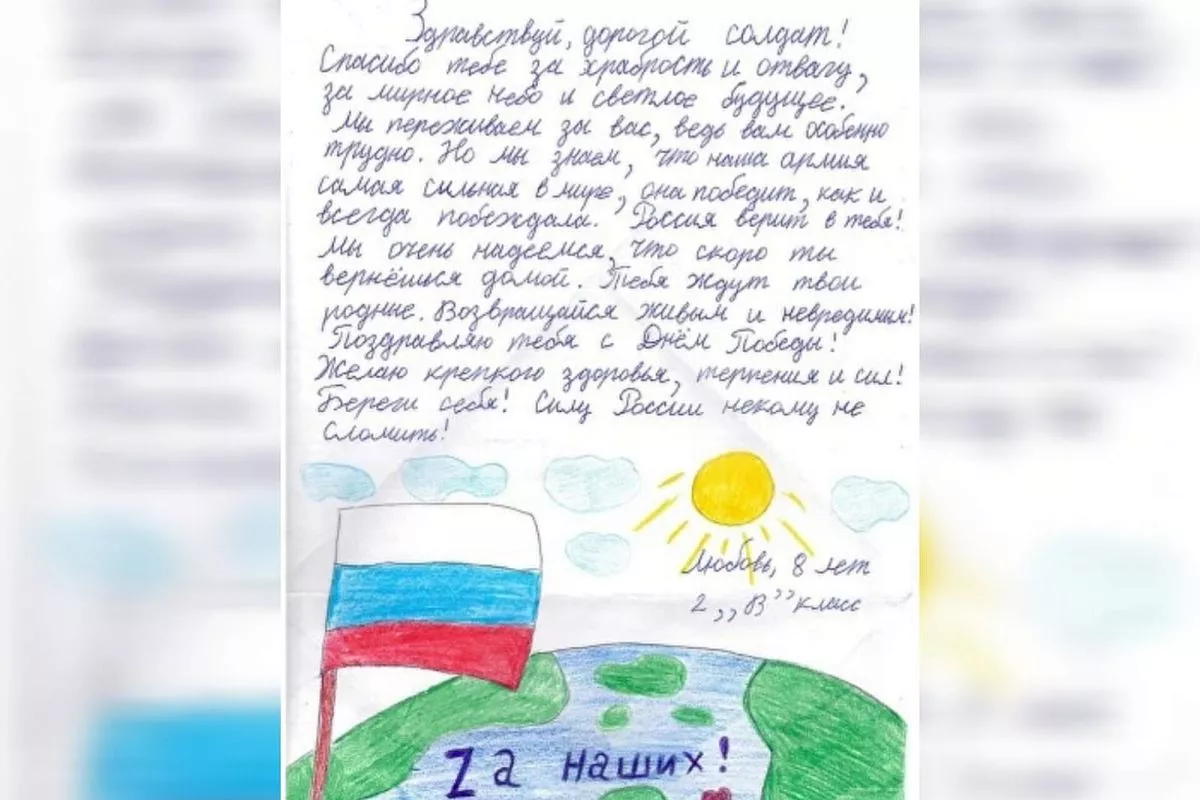 Здравствуй, дорогой солдат!
Спасибо тебе за храбрость и отвагу,
за мирное небо и светлое будущее.
Мы переживаем зы вас, ведь вам особенно
трудно. Но мы знаем, что наша армия
самая сильная в мире, она победит, как и
всегда побеждала. Россия верит в тебя!
Мы очень надеемся, что скоро ты
вернёшься домой. Тебя ждут твои
родные. Возвращайся живым и невредимым!
Поздравляю тебя с Днём Победы!
Желаю крепкого здоровья, терпения и сил!
Береги себя! Силу России некому не
сломить!
Любовь, 8 лет
2 „В” класс
Zа наших!